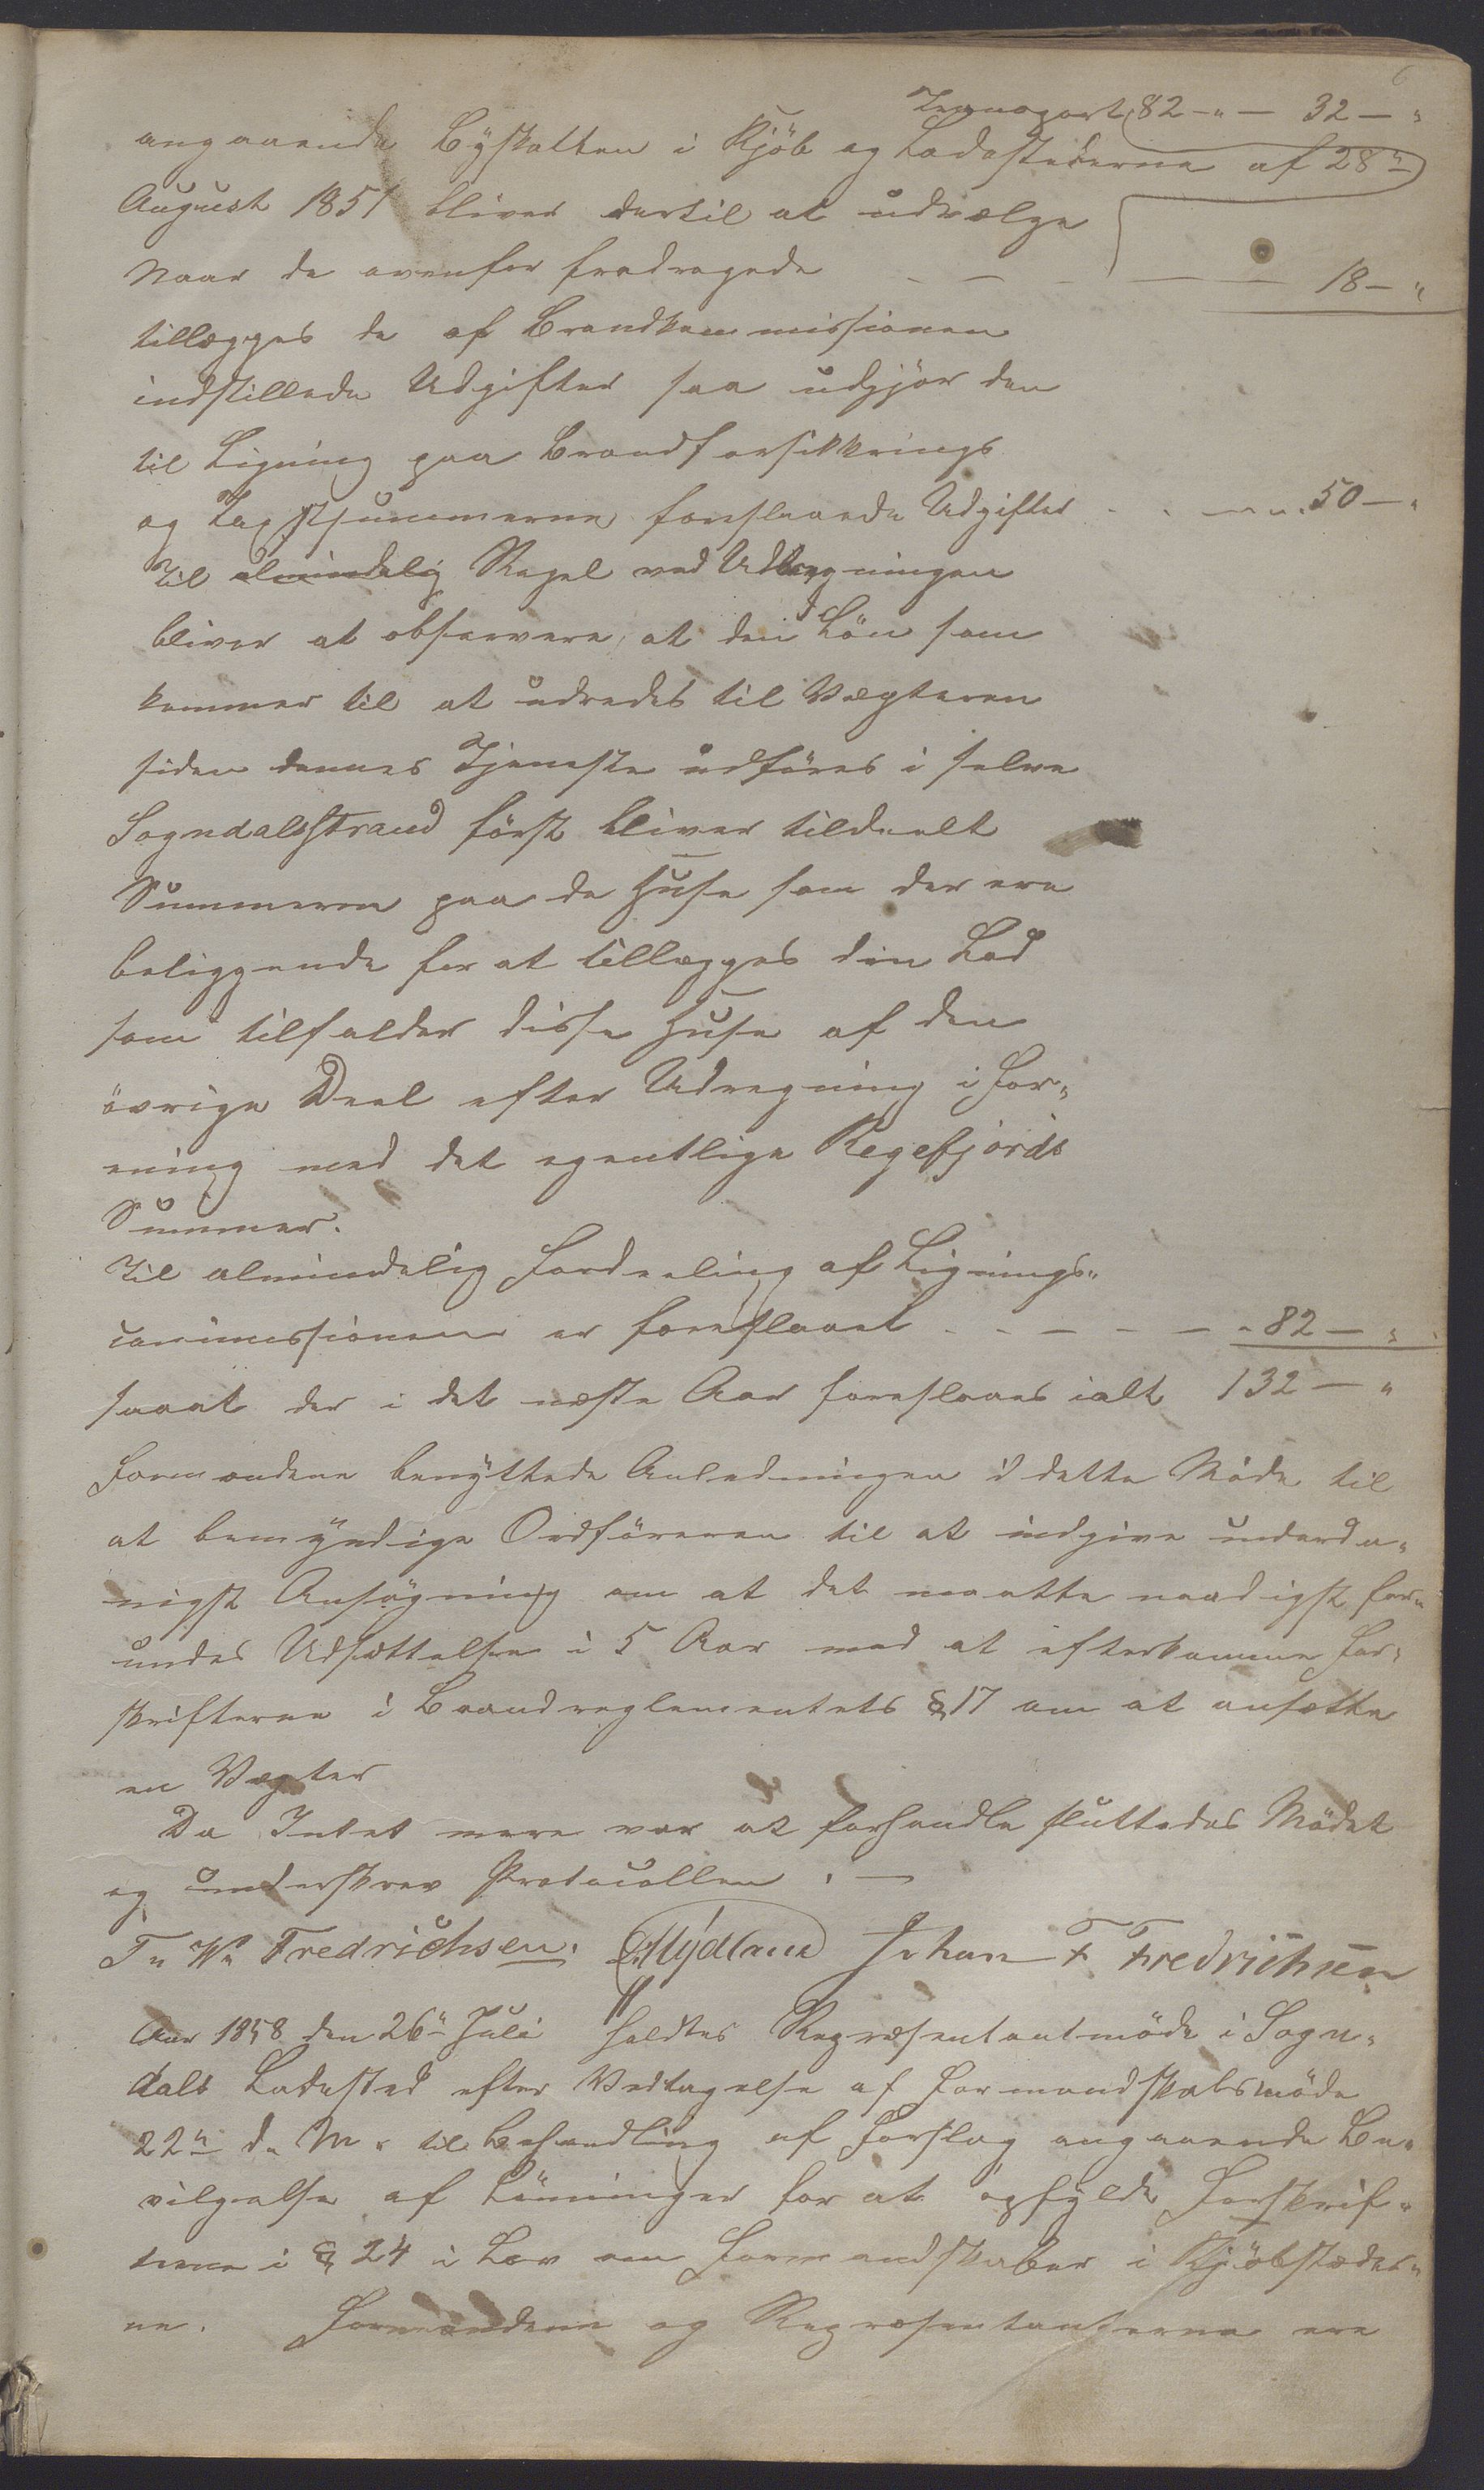 6
Transport 82 - " - 32 - "
angaaende Byskatten i Kjöb og Ladestederne af 28n
August 1851 bliver dertil at udvælge
Naar de ovenfor fradragede - - - - - 18 - "
tillægges de af Brandkommissionen
indstillede Udgifter saa udgjör den
til Ligning paa Brandforsikkrings
og Taxtsummerne foreslaaede Udgifter - - - 50 - "
Til almindelig Regel ved Udregningen
bliver at observere, at den Lön som
kommer til at udredes til Vægteren
siden dennes Tjeneste udföres i selve
Sogndalsstrand först bliver tildeelt
Summerne paa de Huse som der ere
beliggende for at tillægges den Lod
som tilfalder disse Huse af den
övrige Deel efter Udregning i For=
ening med det egentlige Regefjords
Summer.
Til almindelig Fordeeling af Lignings=
commissionen er foreslaaet - - - - - 82 - "
saaat der i det næste Aar foreslaaes ialt 132 - "
Formændene benyttede Anledningen i dette Möde til
at bemyndige Ordföreren til at indgive underda=
nigst Ansögning om at det maatte naadigst for=
undes Udsættelse i 5 Aar med at efterkomme For=
skrifterne i Brandreglementets § 17 om at ansætte
en Vægter
Da Intet mere var at forhandle sluttedes Mödet
og underskrev Protocollen. -
T. W. Fredrichsen. Mydland Johan F Fredrichsen
Aar 1858 den 26n Juli holdtes Repræsentantmöde i Sogn=
dals Ladested efter Vedtagelse af Formandskabsmöde
22n d. M. til Behandling af Forslag angaaende Be=
vilgelse af Lönninger for at opfylde Forskrif=
terne i § 24 i Lov om Formandskaber i Kjöbstæder=
ne. Formændene og Repræsentanterne ere